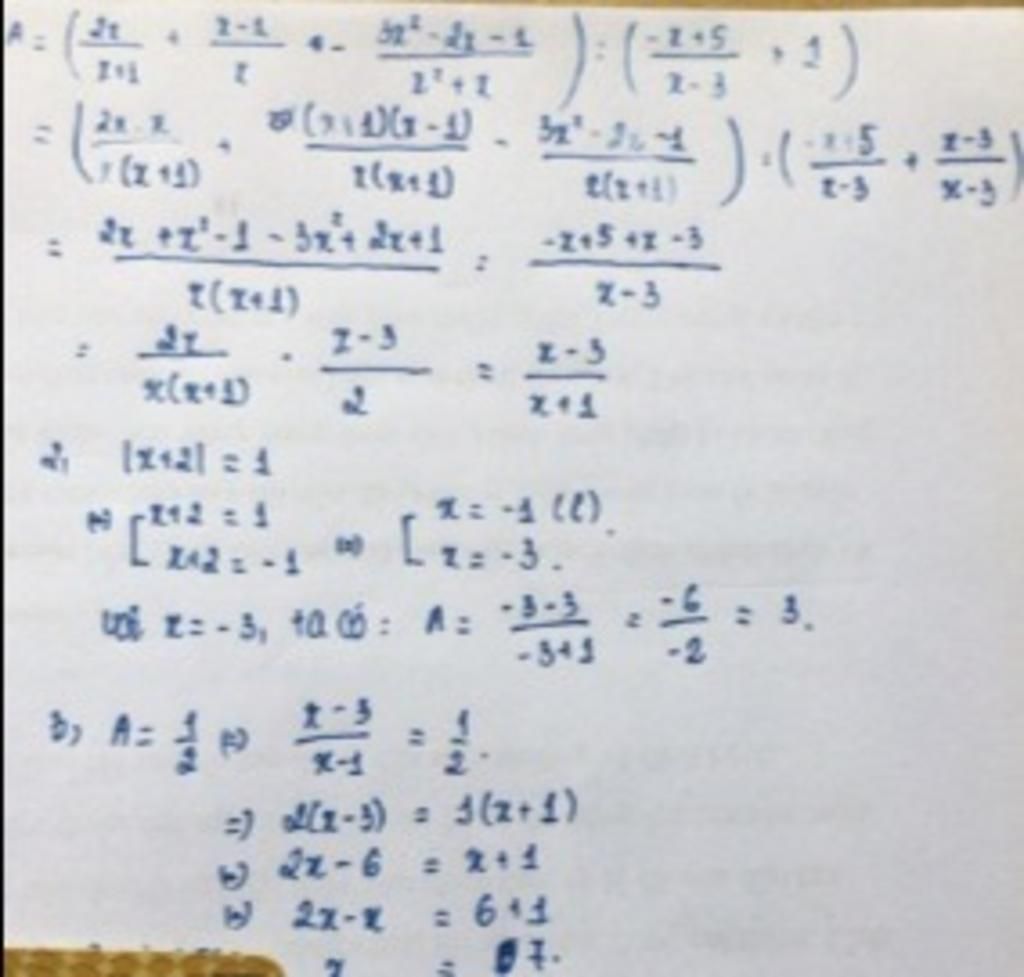 A = (2x/(x+1) + (x-1)/x - (3x²-2x-1)/(x²+x)) : ((-x+5)/(x-3) + 1)
= (2x.x/(x(x+1)) + (x+1)(x-1)/(x(x+1)) - (3x²-2x-1)/(x(x+1))) : ((-x+5)/(x-3) + (x-3)/(x-3))
= (2x+x²-1-3x²+2x+1)/(x(x+1)) : (-x+5+x-3)/(x-3)
= 2x/(x(x+1)) . (x-3)/2 = (x-3)/(x+1)
2, |x+2| = 1
⇔ [ x+2 = 1 ⇔ [ x = -1 (l).
x+2 = -1 x = -3.
với x = -3, ta có: A = (-3-3)/(-3+1) = -6/-2 = 3.
3, A = 1/2 ⇔ (x-3)/(x-1) = 1/2.
=> 2(x-3) = 1(x+1)
⇔ 2x-6 = x+1
⇔ 2x-x = 6+1
x = 7.